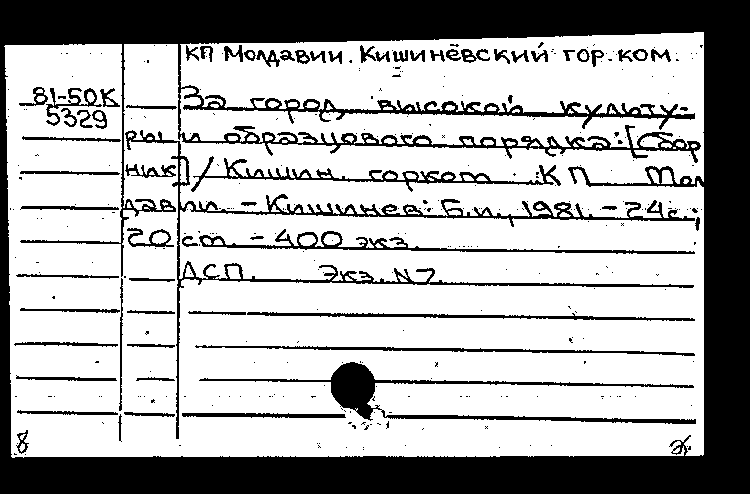 КП Молдавии. Кишинёвский гор. ком.
81-50К
5329
За город высокой культу-
ры и образцового порядка: [Сбор
ник] / Кишин. горком КП Мол
давии. - Кишинев: Б.и., 1981. - 24с.;
20 см. - 400 экз.
ДСП. Экз. N7.
8